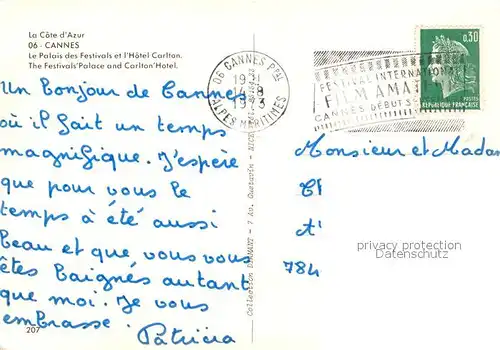 La Côte d'Azur
06 - CANNES
Le Palais des Festivals et l'Hôtel Carlton.
The Festivals'Palace and Carlton'Hotel.
Un Bonjour de Cannes
où il fait un temps
magnifique. J'espère
que pour vous le
temps à été aussi
beau et que vous vous
êtes baignés autant
que moi. Je vous
embrasse.
Patricia
207
06 CANNES Ppal
19
8
1973
ALPES MARITIMES
FESTIVAL INTERNATIONAL
FILM AMA
CANNES DÉBUT S
0,30
POSTES
REPUBLIQUE FRANÇAISE
Monsieur et Madam
784
privacy protection
Datenschutz